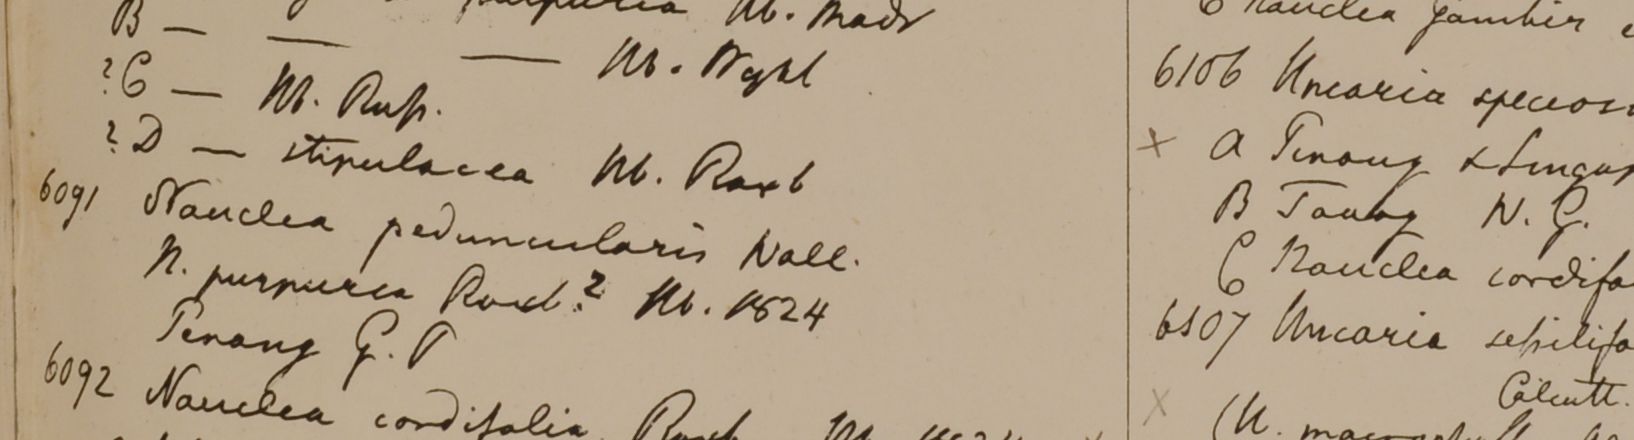 purpurea Hb. Madr
B — — — Hb. Wight
?C — Hb. Russ.
?D — stipulacea Hb. Roxb
6091 Nauclea peduncularis Wall.
N. purpurea Roxb.? Hb. 1824
Penang G. P
6092 Nauclea cordifolia Roxb Hb. 1824
C Nauclea Gambir
6106 Uncaria speciosa
× A Penang & Singap
B Tavoy W. G.
C Nauclea cordifo
6107 Uncaria sessilifo
Calcutt.
×